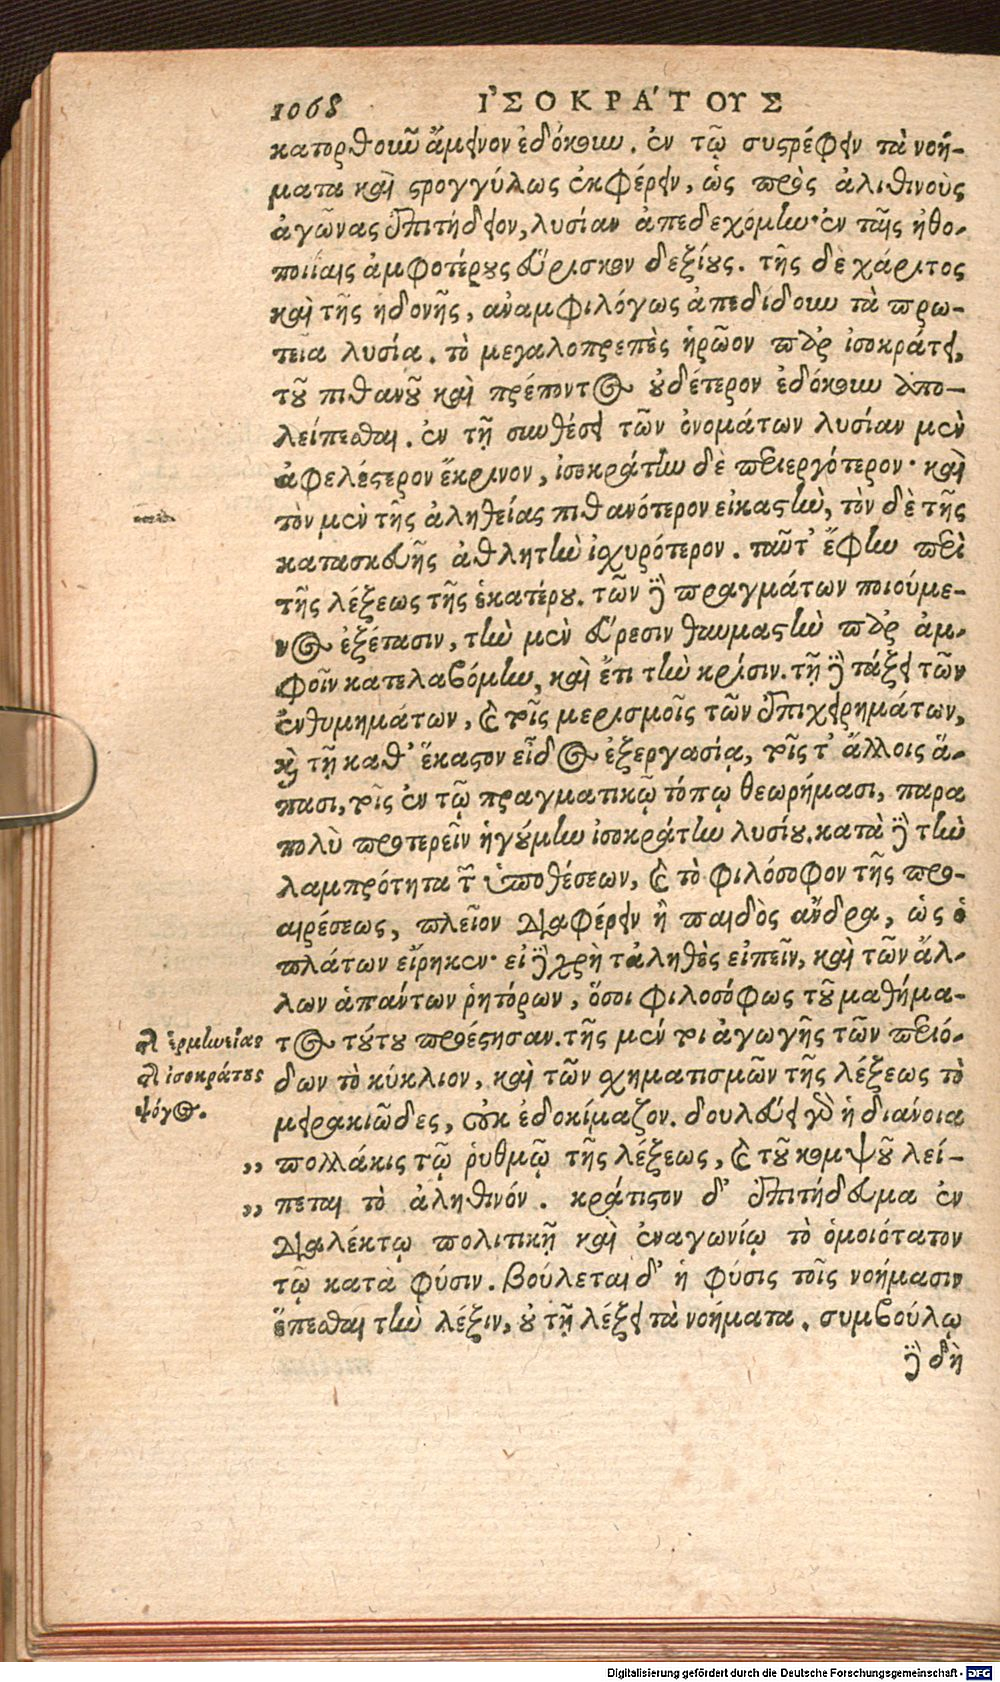 1068 ἸΣΟΚΡΆΤΟΥΣ
κατορθοῦν ἄμεινον ἐδόκουν. ἐν τῷ συστρέφειν τὰ νοή-
ματα καὶ στρογγύλως ἐκφέρειν, ὡς πρὸς ἀλιθινοὺς
ἀγῶνας ἐπιτήδειον, λυσίαν ἀπεδεχόμην· ἐν ταῖς ἠθο-
ποιΐαις ἀμφοτέρους εὕρισκον δεξίους. τῆς δὲ χάριτος
καὶ τῆς ἡδονῆς, ἀναμφιλόγως ἀπεδίδουν τὰ πρω-
τεῖα λυσίᾳ. τὸ μεγαλοπρεπὲς ἑώρων παρ' ἰσοκράτει,
τοῦ πιθανοῦ καὶ πρέποντος οὐδέτερον ἐδόκουν ἀπο-
λείπεσθαι. ἐν τῇ συνθέσει τῶν ὀνομάτων λυσίαν μὲν
ἀφελέστερον ἔκρινον, ἰσοκράτην δὲ περιεργότερον· καὶ
τὸν μὲν τῆς ἀληθείας πιθανότερον εἰκαστὴν, τὸν δὲ τῆς
κατασκευῆς ἀθλητὴν ἰσχυρότερον. ταῦτ' ἔφην περὶ
τῆς λέξεως τῆς ἑκατέρου. τῶν δὲ πραγμάτων ποιούμε-
νος ἐξέτασιν, τὴν μὲν εὕρεσιν θαυμαστὴν παρ' ἀμ-
φοῖν κατελαβόμην, καὶ ἔτι τὴν κρίσιν. τῇ δὲ τάξει τῶν
ἐνθυμημάτων, καὶ τοῖς μερισμοῖς τῶν ἐπιχειρημάτων,
καὶ τῇ καθ' ἕκαστον εἶδος ἐξεργασίᾳ, τοῖς τ' ἄλλοις ἅ-
πασι, τοῖς ἐν τῷ πραγματικῷ τόπῳ θεωρήμασι, παρα
πολὺ προτερεῖν ἡγούμην ἰσοκράτην λυσίου. κατὰ δὲ τὴν
λαμπρότητα τῶν ὑποθέσεων, καὶ τὸ φιλόσοφον τῆς προ-
αιρέσεως, πλεῖον διαφέρειν ἢ παιδὸς ἄνδρα, ὡς ὁ
πλάτων εἴρηκεν· εἰ δὲ χρὴ τἀληθὲς εἰπεῖν, καὶ τῶν ἄλ-
λων ἁπάντων ῥητόρων, ὅσοι φιλοσόφως τοῦ μαθήμα-
τος τούτου προέστησαν. τῆς μέν τοι ἀγωγῆς τῶν περιό-
δων τὸ κύκλιον, καὶ τῶν σχηματισμῶν τῆς λέξεως τὸ
μειρακιῶδες, οὐκ ἐδοκίμαζον. δουλεύει γὰρ ἡ διάνοια
,, πολλάκις τῷ ῥυθμῷ τῆς λέξεως, καὶ τοῦ κομψοῦ λεί-
,, πεται τὸ ἀληθινόν. κράτιστον δ' ἐπιτήδευμα ἐν
διαλέκτῳ πολιτικῇ καὶ ἐναγωνίῳ τὸ ὁμοιότατον
τῷ κατὰ φύσιν. βούλεται δ' ἡ φύσις τοῖς νοήμασιν
ἕπεσθαι τὴν λέξιν, οὐ τῇ λέξει τὰ νοήματα. συμβούλῳ
δὲ δὴ
ἑρμηνείας
ἰσοκράτους
ψόγος.
Digitalisierung gefördert durch die Deutsche Forschungsgemeinschaft - DFG